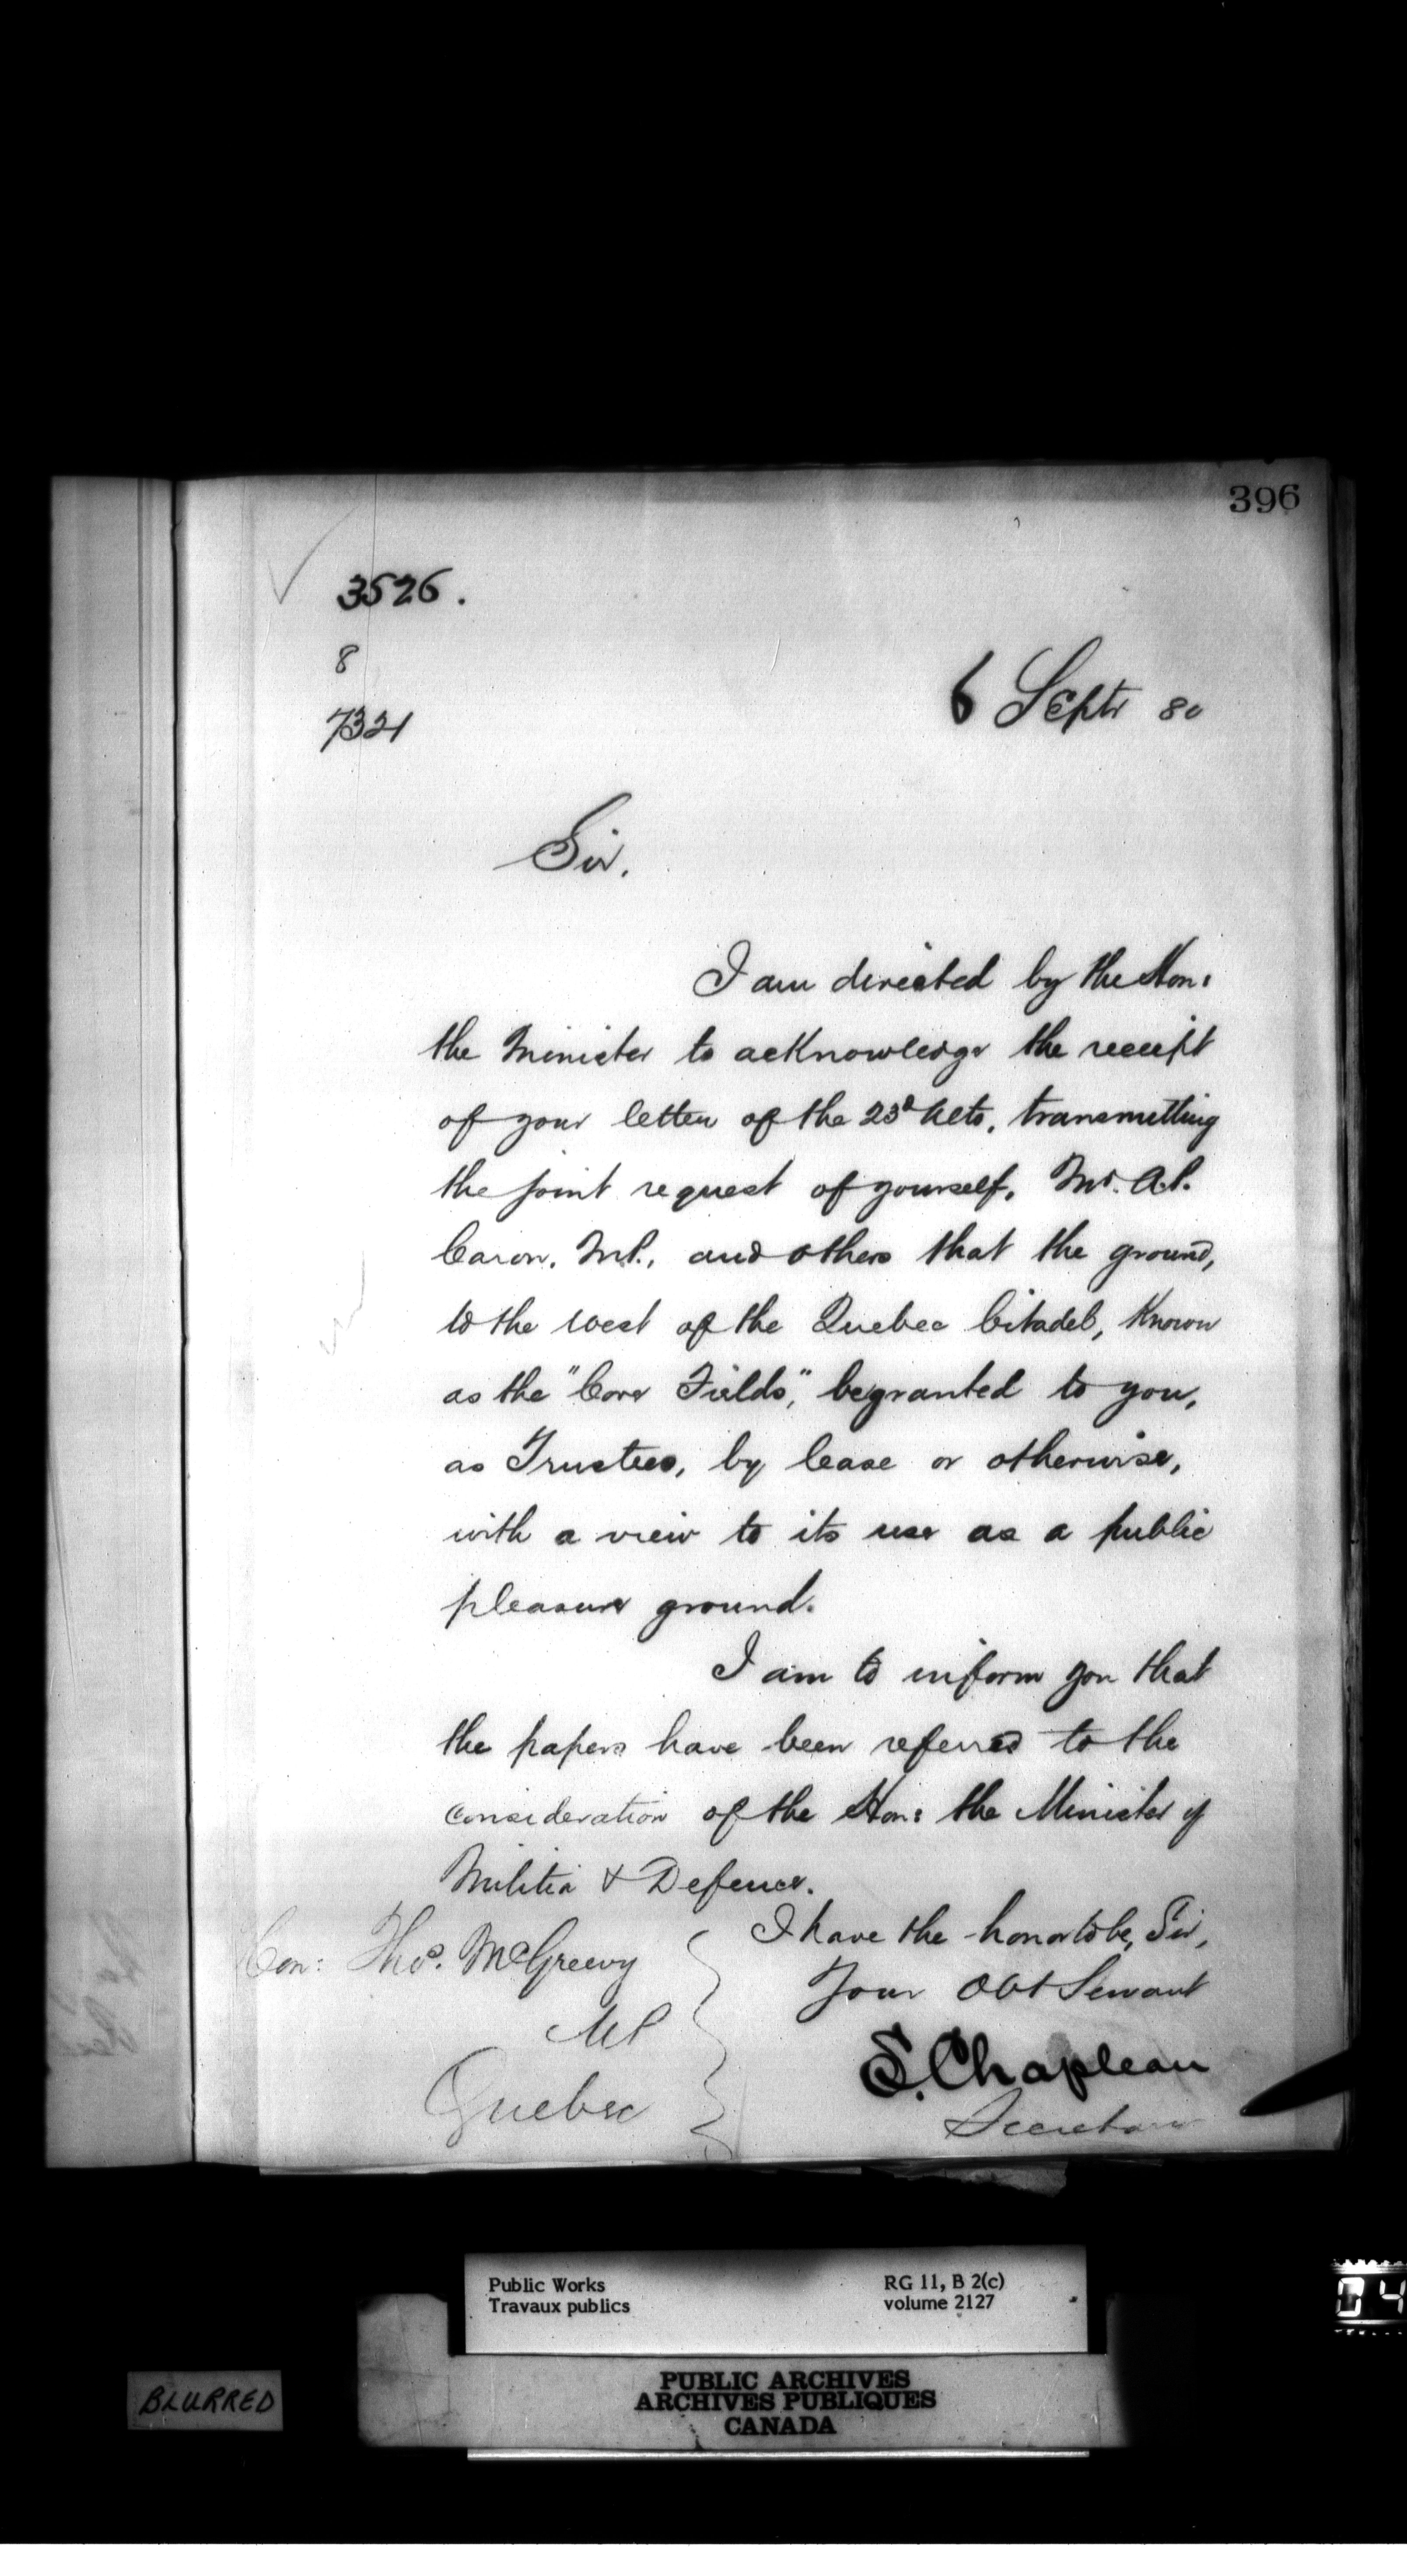 396
3526.
8
7321
6 Septr 80
Sir,
I am directed by the Hon:
the Minister to acknowledge the receipt
of your letter of the 23d ulto, transmitting
the joint request of yourself, Mr. A.P.
Caron, M.P., and others that the ground,
to the west of the Quebec Citadel, Known
as the "Cove Fields," be granted to you,
as Trustees, by lease or otherwise,
with a view to its use as a public
pleasure ground.
I am to inform you that
the papers have been referred to the
consideration of the Hon: the Minister of
Militia & Defence.
I have the honor to be, Sir,
Your Obt Servant
S. Chapleau
Secretary
Hon: Thos. McGreevy
MP
Quebec
Public Works
Travaux publics
RG 11, B 2(c)
volume 2127
BLURRED
PUBLIC ARCHIVES
ARCHIVES PUBLIQUES
CANADA
04